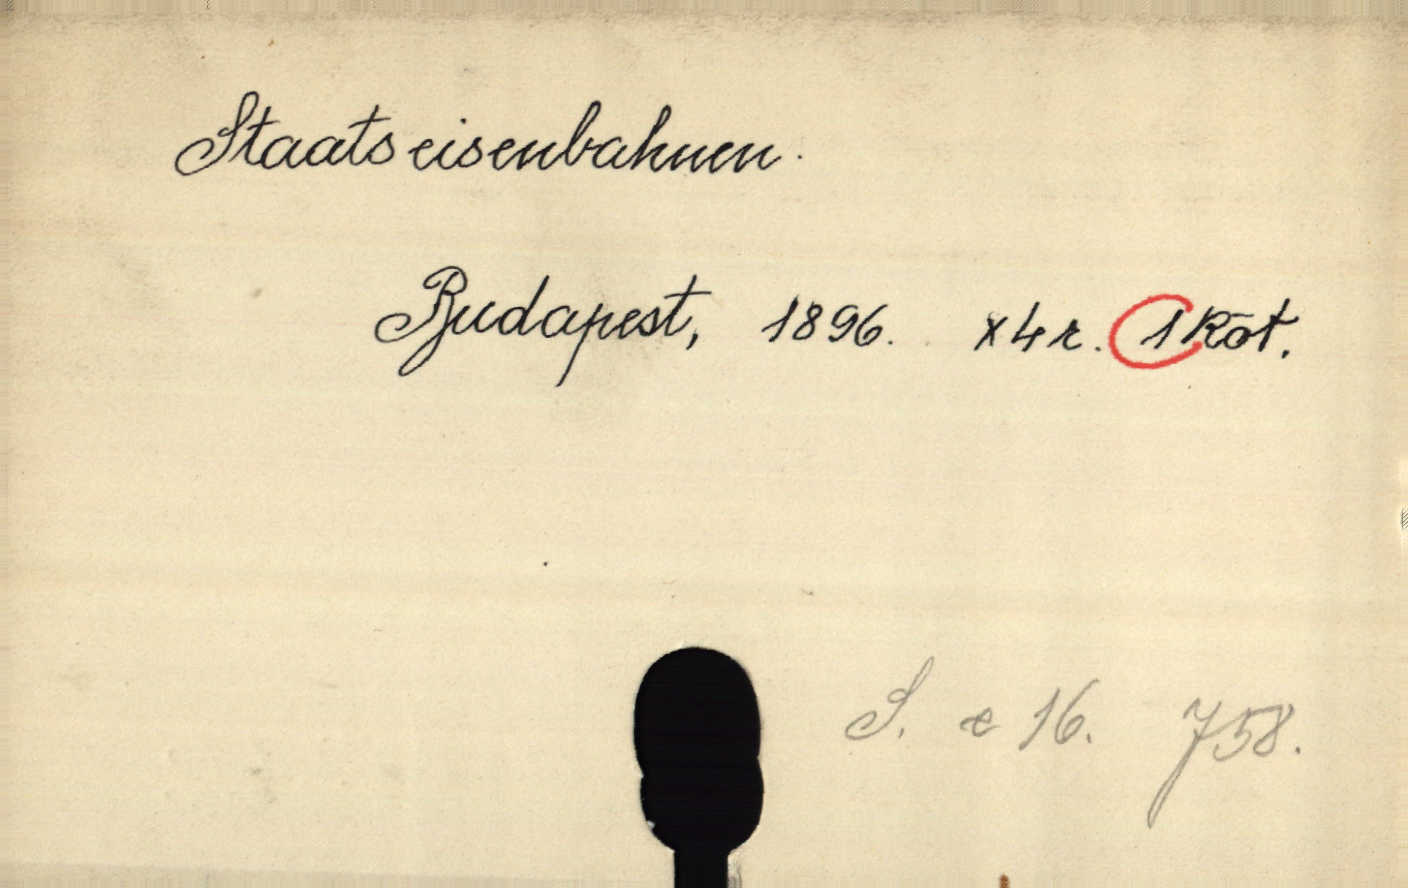 Staatseisenbahnen.
Budapest, 1896. x4r. 1 Köt.
S. e 16. 758.